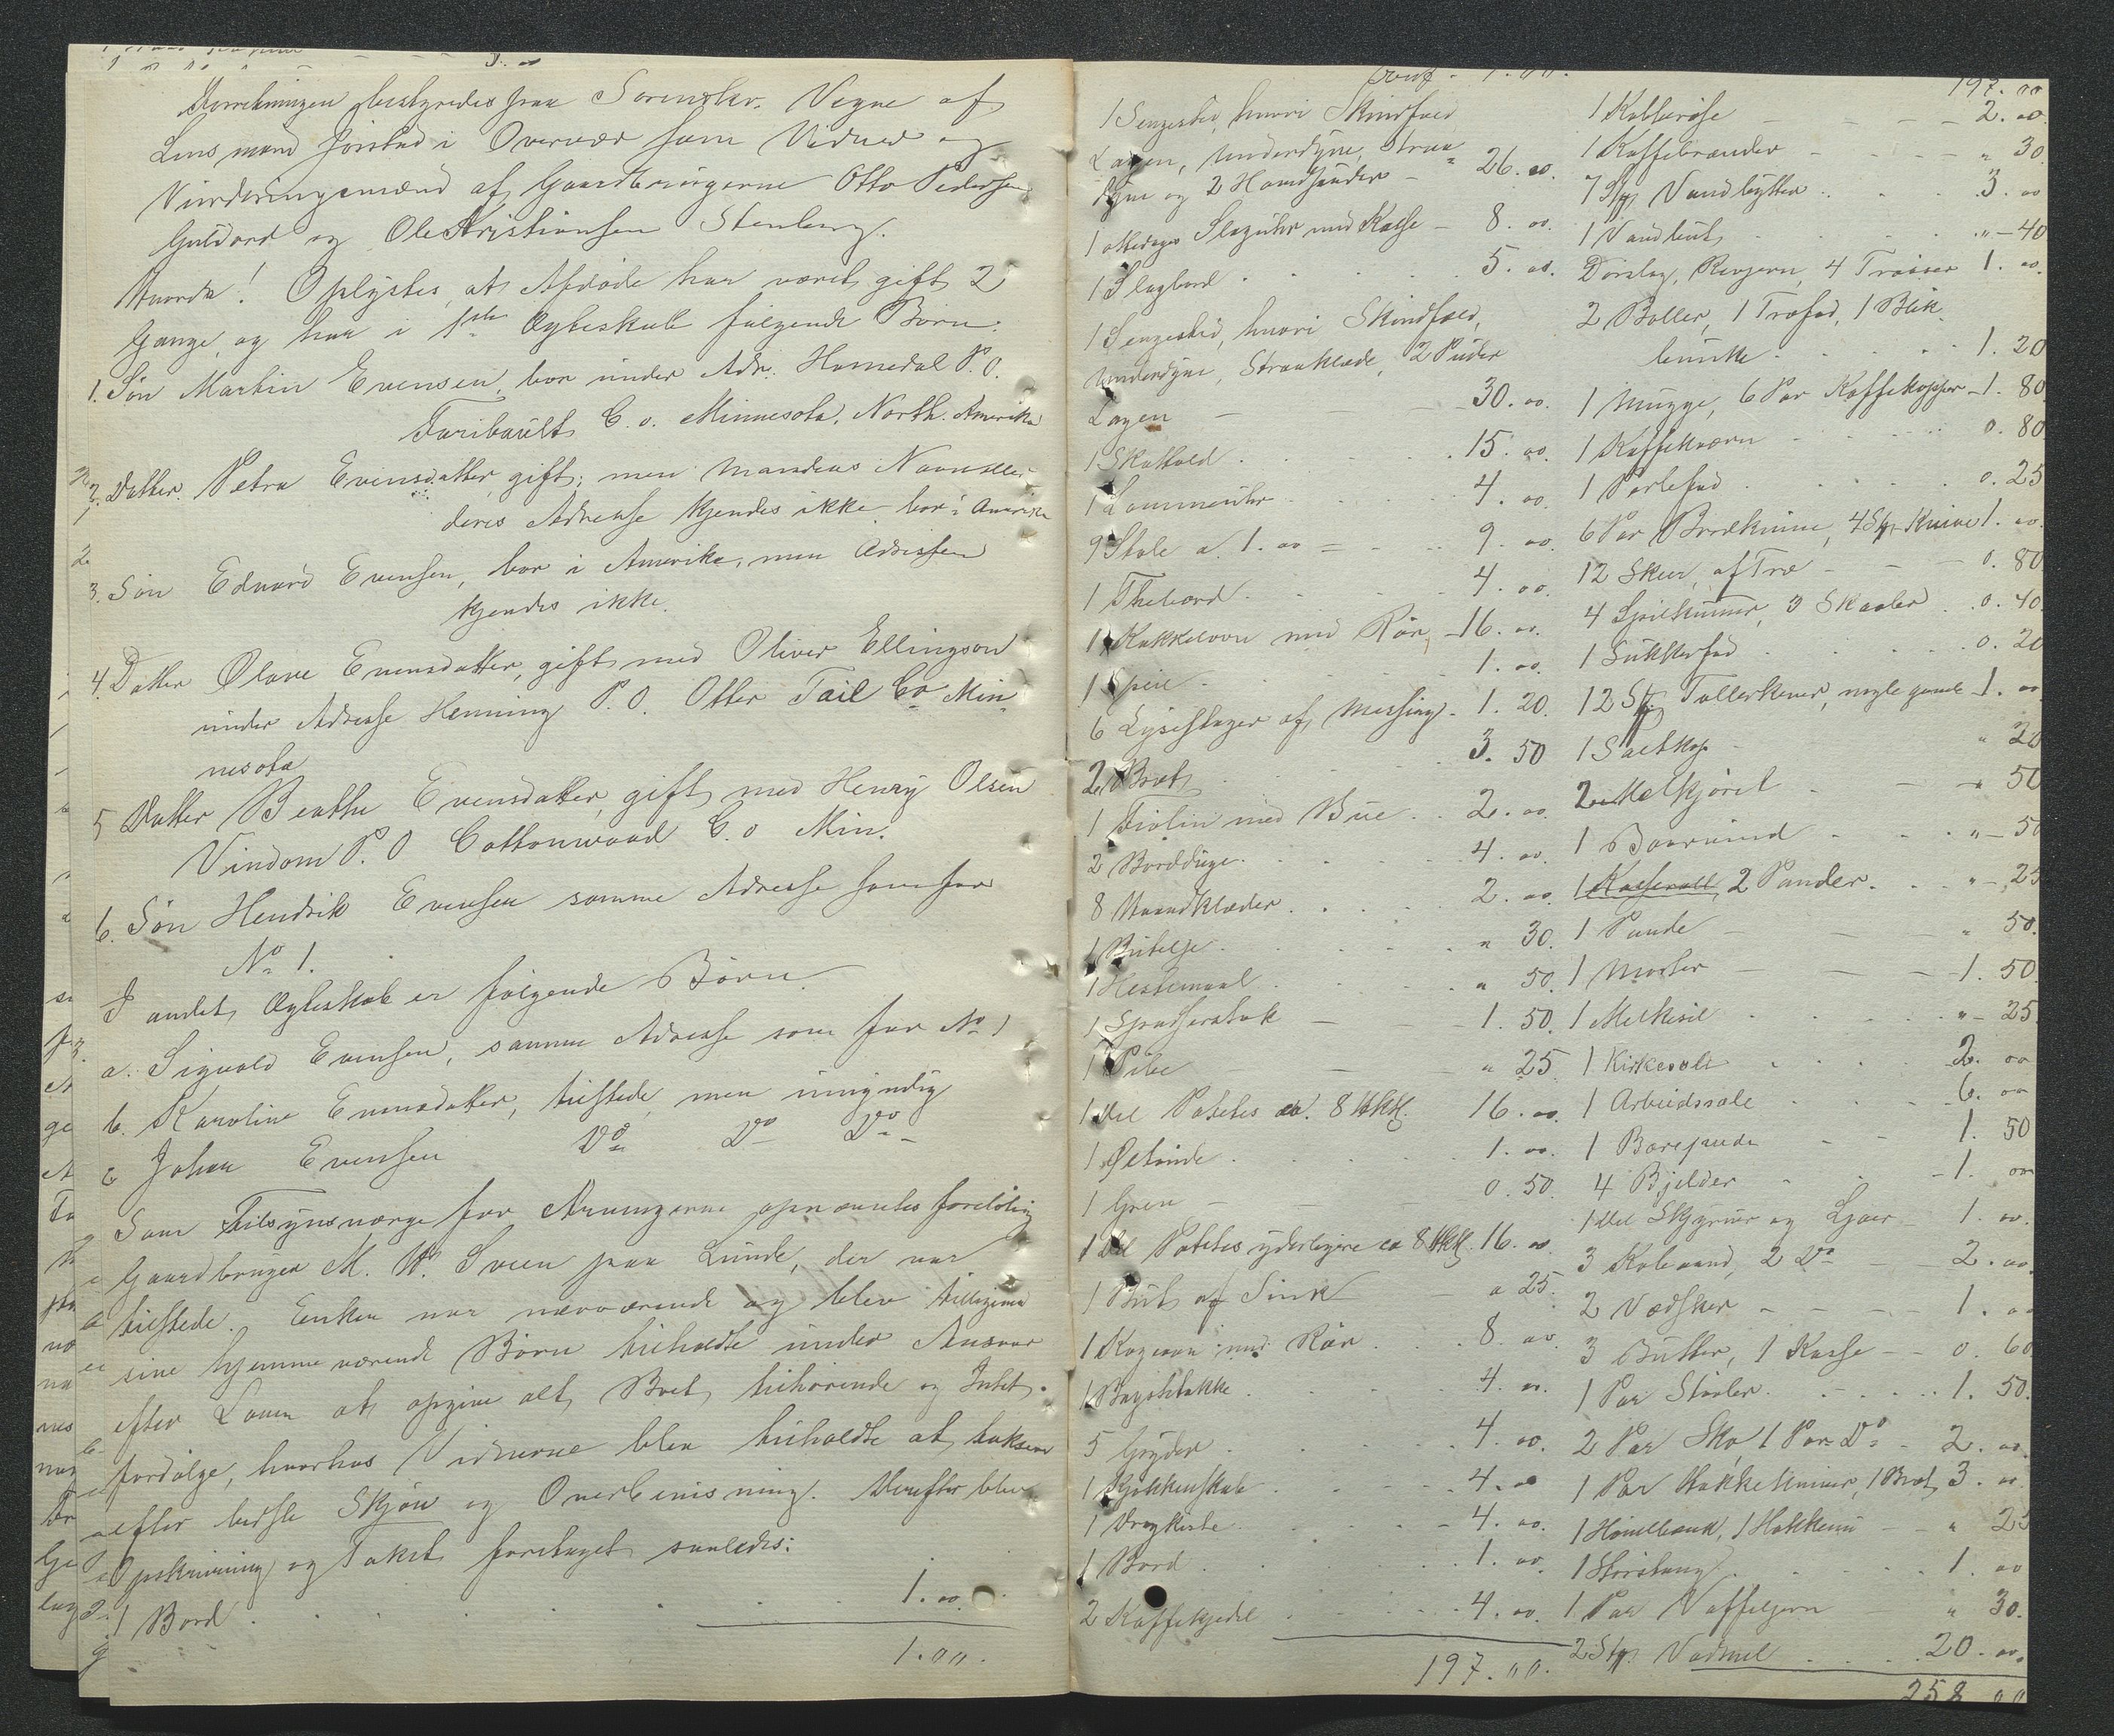 Forretningen bestyredes paa Sorenskr. Vegne af
Lensmand Jörstad i Overvær som Vidner og
Vurderingsmænd af Gaardbrugerne Otto Pedersen
og Ole Kristiansen Stenberg.
Hvorda! Oplystes, at Afdøde har været gift 2
Gange, og har i 1ste Ægteskab følgende Børn:
1. Søn Martin Evensen, bor under Adr. Homedal P. O.
Faribault C.o. Minnesota. North. Amerika
2. Datter Petra Evensdatter gift; men Mandens Navn eller
deres Adresse kjendes ikke bor i Amerika
3. Søn Edvard Evensen, bor i Amerika, men Adressen
kjendes ikke.
4. Datter Olave Evensdatter, gift med Oliver Ellingson
under Adresse Henning P. O. Otter Tail Co Min
nesota
5 Datter Beathe Evensdatter gift med Henry Olsen
Vindom P. O Cottonwood C.o Min.
6. Søn Hendrik Evensen samme Adresse som for
No 1.
I andet Ægteskab er følgende Børn.
a. Sigvald Evensen, samme Adresse som for No 1
b. Karoline Evensdatter, tilstede, men umyndig
c Johan Evensen Do Do Do
Som Tilsynsværge for Arvingerne opnævntes foreløbig
Gaardbruger M. Sveen paa Lunde, der var
tilstede. Enken var nærværende og blev tilligemed
sine hjemmeværende Børn tilholdte under Ansvar
efter Loven at opgive alt Boet tilhørende og Intet
fordølge, hvorhos Vidnerne blev tilholdte at taksere
efter bedste Skjøn og Overbevisning. Derefter blev
Opskrivning og Takst foretaget saaledes:
1 Bord 1.00
1.00.
1.00.
1 Sengested, hvori Skindfæld
Lagen, Underdyne, Straa
dyne og 2 Hovedpuder 26.00.
1 ottedages Slaguhr med Kasse 8.00.
1 Slagbord 5.00.
1 Sengested, hvori Skindfæld,
Underdyne, Straaklæde, 2 Puder
Lagen 30.00.
1 Skathold 15.00.
1 Lommeuhr 4.00.
9 Stole a 1.00 = 9.00.
1 Thebord 4.00.
1 Kakkelovn med Rör 16.00.
1 Speil 1.00.
6 Lysestager af Messing 1.20.
2 Bret 3.50
1 Fiolin med Bue 2.00.
2 Bordduge 4.00.
8 Haandklæder 2.00.
1 Butelje " 30.
1 Hestemaal " 50.
1 Spadserstok 1.50.
1 Pibe " 25
1 Del Potetes ca. 8 Hkl. 16.00.
1 Øltønde 1.00.
1 Gren 0.50.
1 Del Potetes yderligere ca 8 Hkl. 16.00
1 Böt af Sink " 25.
1 Kogeovn med Rör 8.00
1 Bagsttakke 4.00.
5 Gryder 4.00.
1 Kjøkkenskab 4.00
1 Dragkiste 4.00.
1 Bord 1.00.
2 Kaffekjedel 4.00.
197.00.
197.00
1 Kobbervåse 2.00.
1 Kaffebrænder " 30.
7 Stk Vandbytter 3.00
1 Vandbut " 40
Dörslag, Rivjern, 4 1.00.
2 Boller, 1 Træfad, 1 Blik
bunke 1.20
1 Mugge, 6 Par Kaffekopper 1.80
1 Kaffekværn 0.80
1 0.25
6 Par Bordknive, 4 Stk Knive 1.00
12 Skeer, af Træ 0.80
4 Spilkummer, 3 Skaaler 0.40
1 Sukkerfad 0.20
12 Stk. Tallerkener, nogle gamle 1.00
1 Saltkop " 20
2 Melkjörel " 50
1 " 50
1 Kasserolle, 2 Pander " 25
1 Pande " 50.
1 Morter 1.50
1 Melkesil " 25.
1 Kirkesale 2.00
1 Arbeidssale 6.00
1 1.50
4 Bjelder 1.00
1 Del Skyruer og Ljaer 1.00.
3 2 Do 2.00.
2 Vedsker 1.00
3 Bütter, 1 Kasse 0.60
1 Par Stövler 1.50.
2 Par Sko, 1 Par Do 2.00.
1 Par Hakkelkniver, 1 Bret 3.00.
1 Hövelbænk, 1 Hakkeun " 25
1 Störstang 1.00
1 Par Vaffeljern " 30.
2 Stk. Vadmel 20.00.
258 00